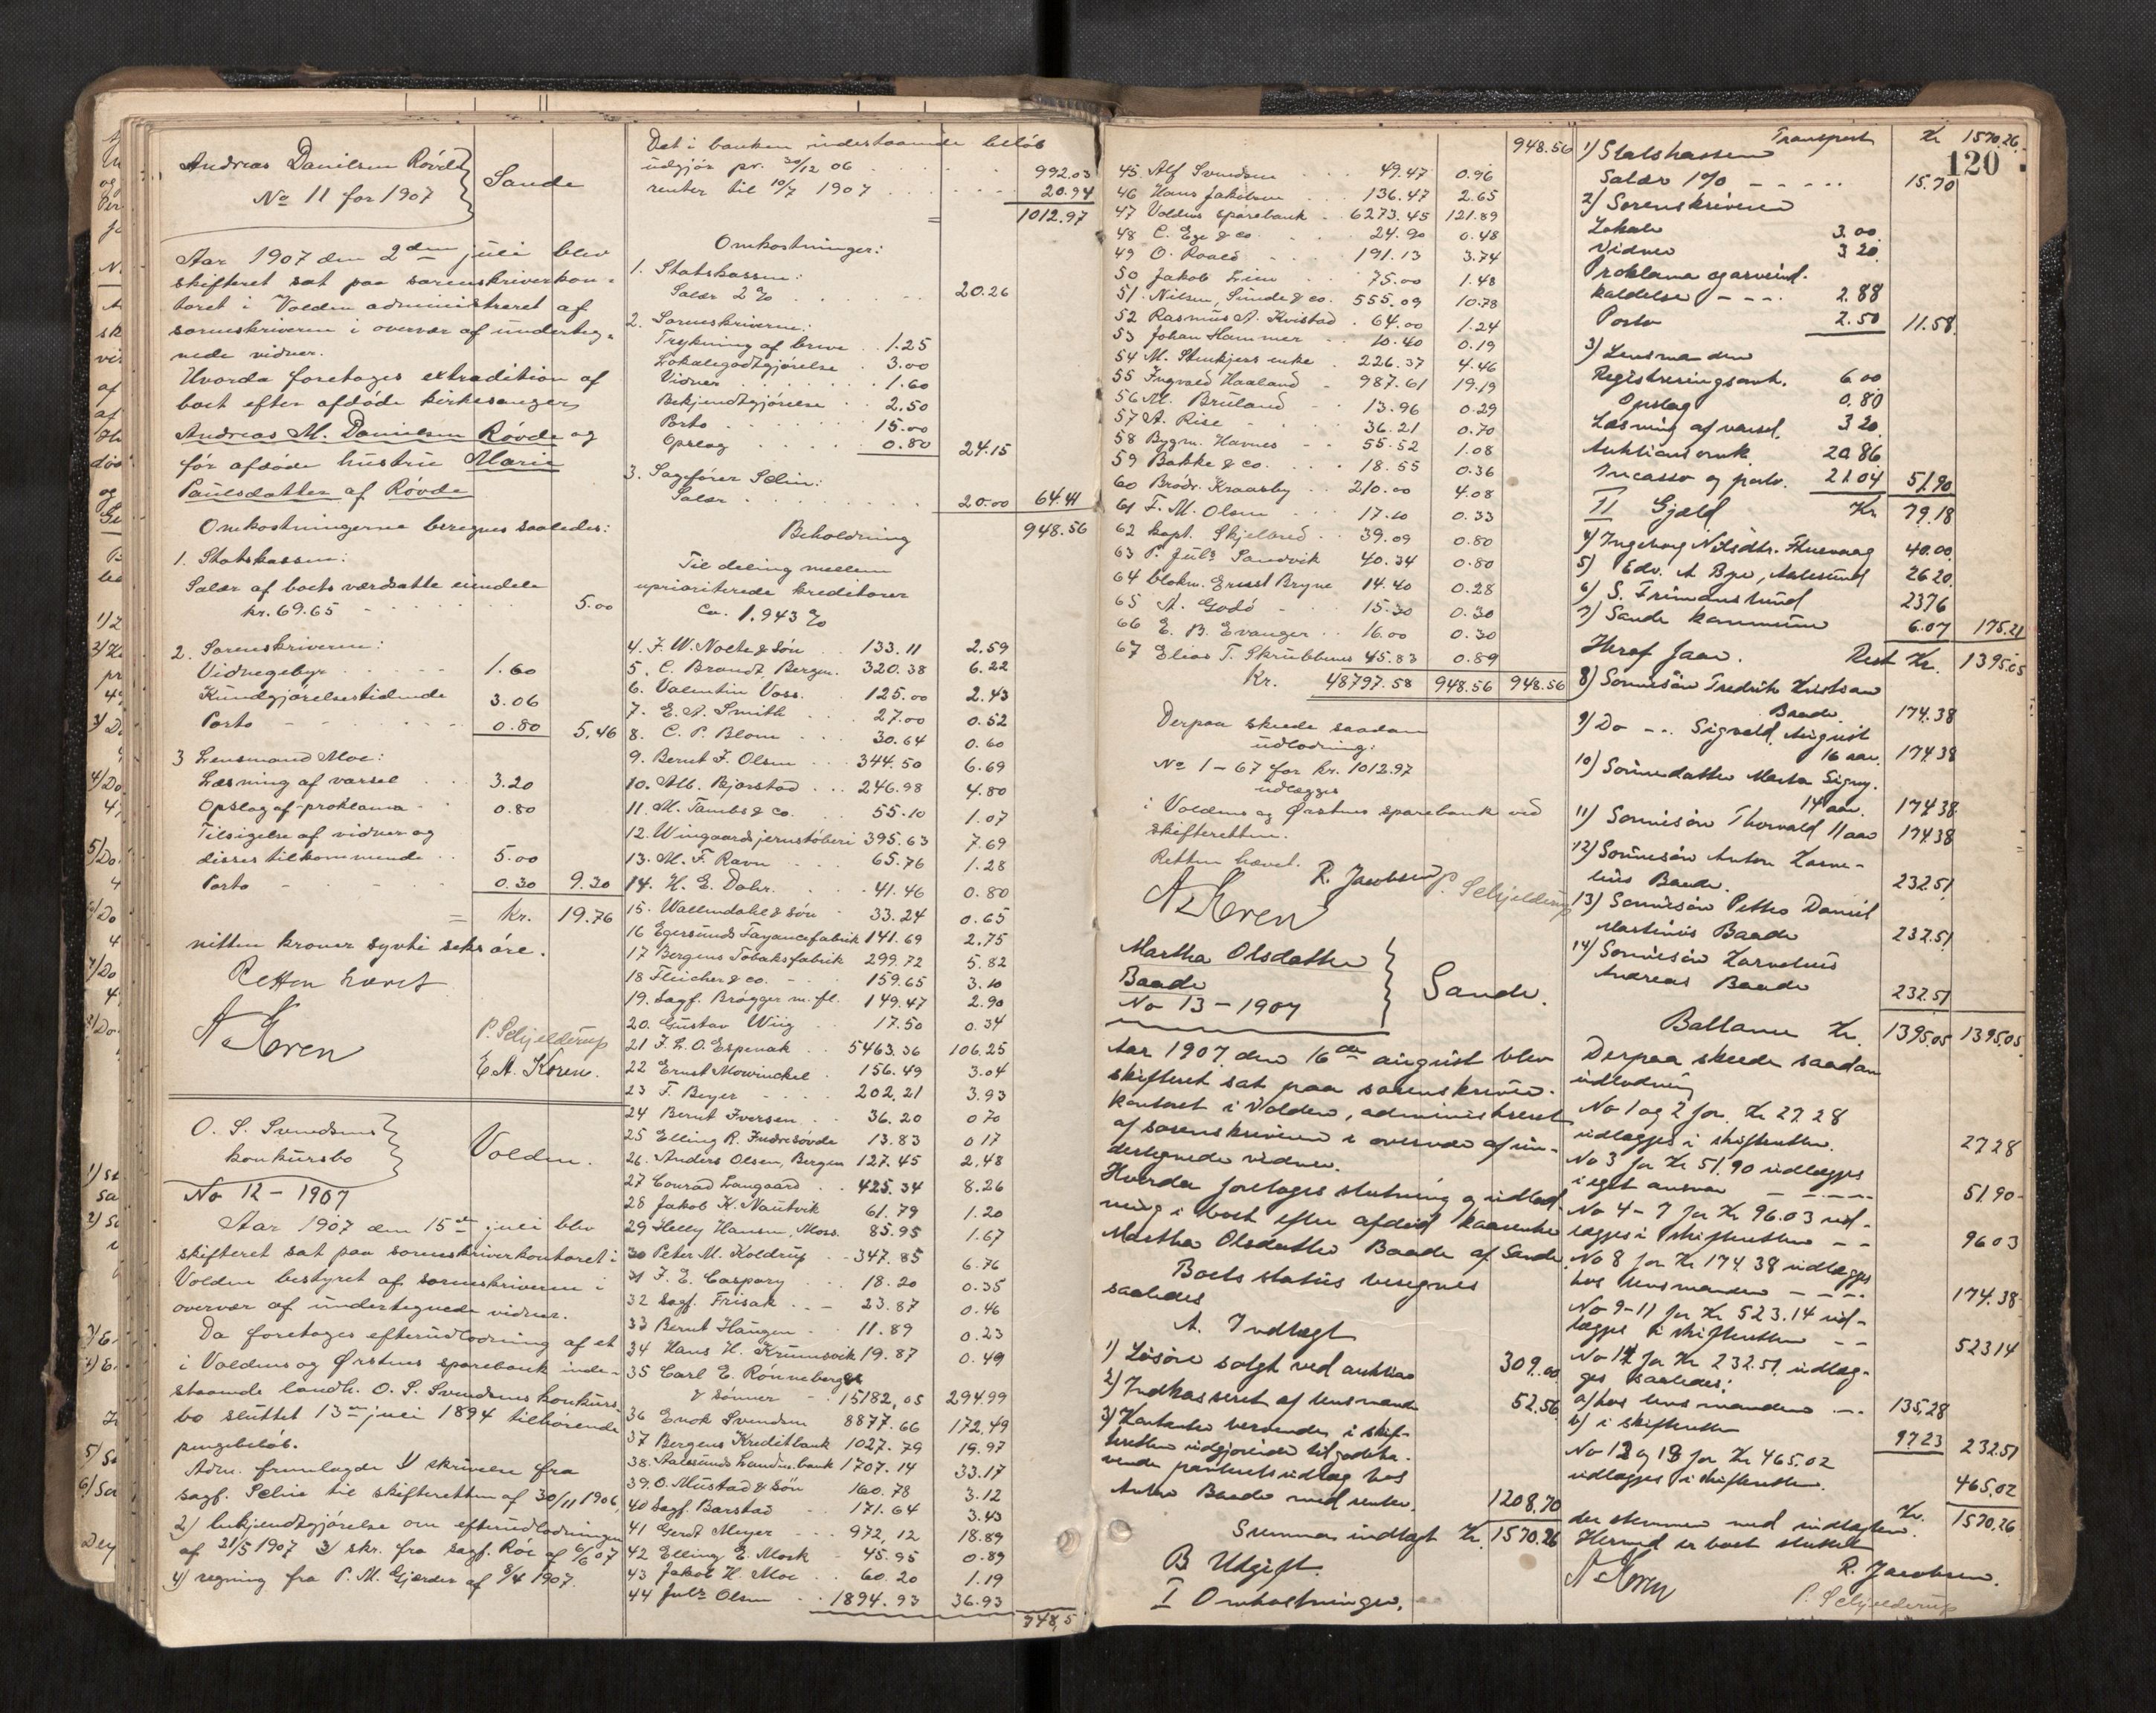 Andreas Danilsen Røvde
No 11 for 1907
Sande
Aar 1907 den 2den juli blev
skifteret sat paa sorenskriverkon-
toret i Volden administreret af
sorenskriveren i overvær af underteg-
nede vidner.
Hvorda foretoges extradition af
boet efter afdøde kirkesanger
Andreas M. Danielsen Røvde og
før afdøde hustru Marie
Paulsdatter af Røvde
Omkostningerne beregnes saaledes:
1. Statskassen:
Salær af boets værdsatte eiendele
kr. 69.65 - 5.00
2. Sorenskriveren:
Vidnegebyr 1.60
Kundgjørelsestidende 3.06
Porto 0.80 5.46
3 Lensmand Moe:
Læsning af varsel 3.20
Opslag af proklama 0.80
Tilsigelse af vidner og
disses tilkommende 5.00
Porto 0.30 9.30
= kr. 19.76
nitten kroner sytti seks øre.
Retten hævet
P. Schjelderup
E. A. Koren.
O. S. Svendsens
konkursbo
Volden.
No 12 - 1907
Aar 1907 den 15de juli blev
skifteret sat paa sorenskriverkontoret i
Volden bestyret af sorenskriveren i
overvær af undertegnede vidner.
Da foretoges efterudlodning af et
i Voldens og Ørstens sparebank inde-
staaende landh. O. S. Svendsens konkurs-
bo sluttet 13de juli 1894 tilhørende
pengebeløb.
Adm. fremlagde 1) skrivelse fra
sagf. Selin til skifteretten af 30/11 1906,
2) bekjendtgjørelse om efterudlodningen
af 21/5 1907 3) skr. fra sagf. Röe af 6/6 07
4) regning fra P. M. Gjærder af 8/4 1907.
Det i banken indestaaende beløb
udgjør pr. 30/12 06 992.03
renter til 10/7 1907 20.94
= 1012.97
Omkostninger:
1. Statskassen:
Salær 2% 20.26
2. Sorenskriveren:
Trykning af breve 1.25
Lokalegodtgjørelse 3.00
Vidner 1.60
Bekjendtgjørelse 2.50
Porto 15.00
Opslag 0.80 24.15
3. Sagfører Selin:
Salær 20.00 64.41
Beholdning 948.56
Til deling mellem
uprioriterede kreditorer
Ca. 1.943 %
4. F. W. Nolte & søn 133.11 2.59
5. C. Brandt, Bergen. 320.38 6.22
6. Valentin Voss. 125.00 2.43
7. E. A. Smith 27.00 0.52
8. C. P. Blom 30.64 0.60
9. Bernt J. Olsen 344.50 6.69
10. Alb. Bjorstad 246.98 4.80
11. M. Tambs & co. 55.10 1.07
12. Wingaards jernstøberi 395.63 7.69
13. M. F. Ravn 65.76 1.28
14. H. E. Dahr. 41.46 0.80
15. Wallendahl & søn 33.24 0.65
16 Egersunds Fayancefabrik 141.69 2.75
17 Bergens Tobaksfabrik 299.72 5.82
18 Fleicher & co. 159.65 3.10
19. Sagf. Brøgger m. fl. 149.47 2.90
20. Gustav Wiig 17.50 0.34
21 J. L. O. Espenak 5463.36 106.25
22 Ernst Mowinckel 156.49 3.04
23 F. Beyer 202,21 3.93
24 Bernt Iversen 36.20 070
25 Elling R. Indresøvde 13.83 017
26. Anders Olsen, Bergen 127.45 2.48
27 Conrad Langaard 425.34 8.26
28 Jakob K. Nautvik 61.79 1.20
29 Helly Hansen, Moss. 85.95 1.67
30 Peter M. Koldrup 347.85 6.76
31 J. E. Caspary 18.20 0.35
32 Sagf. Frisak 23.87 0.46
33 Bernt Haugen 11.89 0.23
34 Hans H. Krumsvik 19.87 0.49
35 Carl E. Rønneberg
& sønner 15182,05 294.99
36 Enok Svendsen 8877.66 172,49
37 Bergens Kreditbank 1027.79 19.97
38. Aalesunds Landm. bank 1707.14 33.17
39. O. Mustad & søn 160.78 3.12
40 Sagf. Barstad 171.64 3.43
41 Gerdt Meyer 972,12 18.89
42 Elling E. Mork 45.95 0.89
43 Jakob H. Moe 60.20 1.19
44 Juls Olsen 1894.93 36.93
948,5
948.56
45. Alf Svendsen 49.47 0.96
46 Hans Jakobsen 136.47 2.65
47 Voldens sparebank 6273.45 121.89
48 C. Ege & co. 24.90 0.48
49 O. Roald 191.13 3.74
50 Jakob Lien 75.00 1.48
51. Nilsen, Sunde & co. 555.09 10.78
52 Rasmus A. Kvistad 64.00 1.24
53 Johan Hammer 10.40 0.19
54 M. Stenkjers enke 226.37 4.46
55 Ingvald Haaland 987.61 19.19
56 M. Bruland 13.96 0.29
57 A. Rise 36.21 0.70
58 Bygm. Havnes 55.52 1.08
59 Bakke & co. 18.55 0.36
60 Brødr. Kraasby 210.00 4.08
61 F. M. Olsen 17.10 0.33
62 kapt. Skjelbred 39.09 0.80
63 P. Juls Sandvik 40.34 0.80
64 blokm. Ernst Bryne 14.40 0.28
65 A. Godø 15.30 0.30
66 E. B. Evanger 16.00 0.30
67 Elias T. Skrubbenes 45.83 0.89
Kr. 48797.58 948.56 948.56
Derpaa skede saadan
udlodning:
No 1 - 67 for kr. 1012.97
udlægges
i Voldens og Ørstens sparebank ved
skifteretten.
Retten hævet.
R. Jacobsen P. Schjelderup
Martha Olsdatter
Baade
No 13 - 1907
Sande.
Aar 1907 den 16de august blev
skifteret sat paa sorenskriver-
kontoret i Volden, administreret
af sorenskriveren i overvær af un-
dertegnede vidner.
Hvorda foretoges slutning og udlod-
ning i boet efter afdød kaarenke
Martha Olsdatter Baade af Sande.
Boets status beregnes
saaledes
A. Indtægt
1) Løsøre solgt ved auktion 309.00
2) Indkasseret af lensmanden 52.56
3) Kontanter beroende i skif-
teretten udgjørende tilgodeha-
vende udlæg hos
Anton Baade med renter. 1208.70
Summa indtægt Kr. 1570.26
B Udgift.
I Omkostninger.
Transport Kr 1570.26
120
1) Statskassen
Salær 1% 15.70
2) Sorenskriveren
Lokale 3.00
Vidner 3 20
Proklama og arveind-
kaldelse 2.88
Porto 2.50 11.58
3) Lensmanden
Registreringsomk. 6.00
Opslag 0.80
Læsning af varsel. 3 20
Auktionsomk 20.86
Incasso og porto. 21.04 51.90
II Gjæld Kr 79.18
4) Ingeborg Nilsdtr. 40.00
5) Edv. A Bye, Aalesund 26 20
6) S. Frimanslund 23 76
7) Sande kommune 6.07 175.21
Heraf faar. Rest Kr. 1395.05
8) Sønnesøn Fredrik Kristian
Baade. 174.38
9) Do - Sigvald August
16 aar. 174.38
10) Sønnedatter Marta Signy.
14 aar 174.38
11) Sønnesøn Thorvald 11 aar 174.38
12) Sønnesøn Anton Korne-
lius Baade. 232.51
13) Sønnesøn Petter Daniel
Martinus Baade 232.51
14) Sønnesøn Kornelius
Andreas Baade 232.51
Ballance Kr. 1395.05 1395.05
Derpaa skede saadan
udlodning
No 1 og 2 for Kr 27.28
udlægges i skifteretten. 27 28
No 3 for Kr 51.90 udlægges
i eget ansvar 51.90
No 4 - 7 for Kr 96.03 ud-
lægges i skifteretten 96 03
No 8 for Kr 174.38 udlægges
hos lensmanden 174.38
No 9-11 for Kr 523.14 ud-
lægges i skifteretten 523 14
No 14 for Kr 232.51 udlæg-
ges saaledes:
a) hos lensmanden 135.28
b) i skifteretten 97 23 232.51
No 12 og 13 for Kr 465.02
udlægges i skifteretten. 465.02
der stemmer med indtægten. Kr. 1570.26
Hermed er boet sluttet
R. Jacobsen.
P. Schjelderup